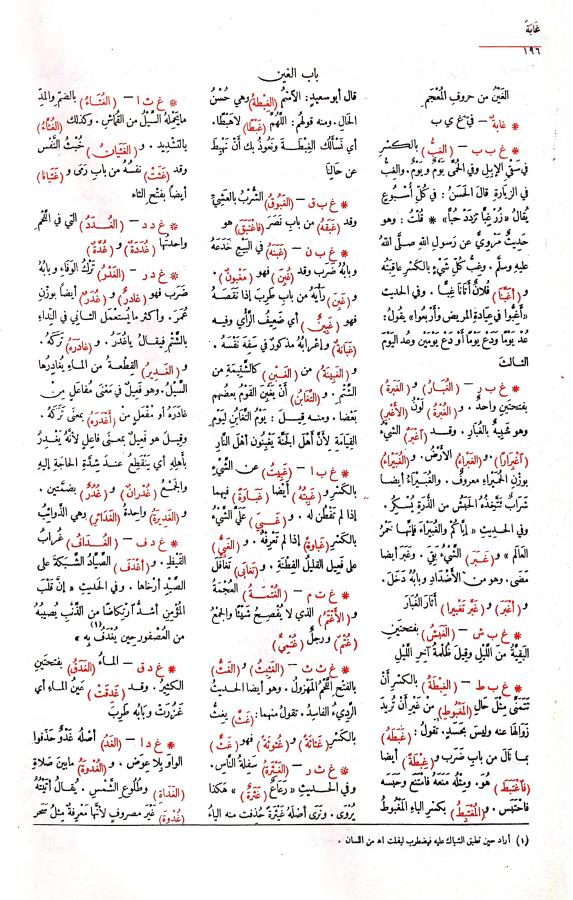 غَابَةٌ
١٩٦
باب الغين
الغَيْنُ من حروفِ المُعْجَمِ
* غابة – في غ ي ب
* غ ب ب – (الغِبُّ) بالكَسْرِ
في سَقْيِ الإبلِ وفي الحُمَّى يَوْمٌ ويَوْمٌ. والغِبُّ
في الزيارةِ قال الحَسَنُ : في كُلِّ أُسْبُوعٍ
يُقالُ «زُرْ غِبًّا تَزْدَدْ حُبًّا» * قُلْتُ : وهو
حديثٌ مَرْوِيٌّ عن رسولِ اللهِ صلَّى اللهُ
عليه وسلم . وغِبُّ كُلِّ شيءٍ بالكَسْرِ عاقِبَتُه
و (أَغَبَّنَا) فُلانٌ أتانا غِبًّا . وفي الحديثِ
«أغِبُّوا في عِيادةِ المريضِ وأَرْبِعُوا» يقولُ :
عُدْ يومًا ودَعْ يومًا أو دَعْ يَوْمَيْنِ وعُدِ اليَوْمَ
الثالث
* غ ب ر – (الغُبَارُ) و (الغَبَرَةُ)
بفتحتينِ واحدٌ . و (الغُبْرَةُ) لَوْنُ (الأَغْبَرِ)
وهو شَبِيهٌ بالغُبَارِ . وقد (اغْبَرَّ) الشيءُ
(اغْبِرَارًا). و (الغَبْرَاءُ) الأرْضُ . و (الغُبَيْرَاءُ)
بوزْنِ الحُمَيْرَاءِ معروفٌ . والغُبَيْرَاءُ أيضا
شَرَابٌ تَتَّخِذُهُ الحَبَشُ من الذُّرَةِ يُسْكِرُ .
وفي الحديثِ «إيَّاكُمْ والغُبَيْرَاءَ فإنَّها خَمْرُ
العالَمِ » و (غَبَرَ) الشيءُ بَقِيَ . وغَبَرَ أيضا
مَضَى . وهو من الأَضْدَادِ وبابُهُ دَخَلَ .
و (أَغْبَرَ) و (غَبَّرَ تَغْبِيرا) أثارَ الغُبَارَ
* غ ب ش – (الغَبَشُ) بفتحتينِ
البَقِيَّةُ من اللَّيْلِ وقيلَ ظُلْمَةُ آخرِ اللَّيْلِ
* غ ب ط – (الغِبْطَةُ) بالكَسْرِ أنْ
تَتَمَنَّى مِثْلَ حالِ (المَغْبُوطِ) من غيرِ أنْ تُرِيدَ
زَوَالَهَا عنه وليسَ بحَسَدٍ. تقولُ : (غَبَطَهُ)
بما نَالَ من بابِ ضَرَبَ و (غِبْطَةً) أيضا
(فاغْتَبَطَ) هُوَ. ومِثْلُه مَنَعَهُ فامْتَنَعَ وحَبَسَه
فاحْتَبَس . و (المُغْتَبِطُ) بكسرِ الباءِ المَغْبُوطُ
قال أبو سعيدٍ: الاسْمُ (الغِبْطَةُ) وهي حُسْنُ
الحَالِ . ومنه قولهُم: اللَّهُمَّ (غَبْطًا) لا هَبْطًا .
أي نَسْأَلُكَ الغِبْطَةَ ونَعُوذُ بك أنْ نَهْبِطَ
عن حالِنا
* غ ب ق – (الغَبُوقُ) الشُّرْبُ بالعَشِيِّ
وقد (غَبَقَهُ) من بابِ نَصَرَ (فاغْتَبَقَ) هو
* غ ب ن – (غَبَنَهُ) في البَيْعِ خَدَعَهُ
وبابُهُ ضَرَبَ وقد (غُبِنَ) فهو (مَغْبُونٌ) .
و (غَبِنَ) رَأْيَهُ من بابِ طَرِبَ إذا نَقَصَهُ
فهو (غَبِينٌ) أي ضَعِيفُ الرَّأْيِ وفيه
(غَبَانَةٌ) وإعْرابُهُ مذكورٌ في سَفِهَ نَفْسَهُ .
و (الغَبِينَةُ) من (الغَبْنِ) كالشَّتِيمَةِ من
الشَّتْمِ . و (التَّغَابُنُ) أنْ يَغْبِنَ القَوْمُ بعضُهُم
بعضا . ومنه قيلَ : يَوْمُ التَّغَابُنِ لِيَوْمِ
القِيامَةِ لأنَّ أهْلَ الجنَّةِ يَغْبِنُونَ أهْلَ النَّارِ
* غ ب ا – (غَبِيتُ) عن الشَّيْءِ
بالكَسْرِ و (غَبِيتُهُ) أيضا (غَبَاوَةً) فيهما
إذا لم تَفْطُنْ له . و (غَبِيَ) عَلَيَّ الشَّيْءُ
بالكَسْرِ (غَبَاوَةً) إذا لم تَعْرِفْهُ . و (الغَبِيُّ)
على فَعِيلٍ القليلُ الفِطْنَةِ . و (تَغَابَى) تَغَافَلَ
* غ ت م – (الغُتْمَةُ) العُجْمَةُ
و (الأَغْتَمُ) الذي لا يُفْصِحُ شَيْئًا والجَمْعُ
(غُتْمٌ) ورجلٌ (غُتْمِيٌّ)
* غ ث ث – (الغَثِيثُ) و (الغَثُّ)
بالفتحِ اللَّحْمُ المَهْزُولُ . وهو أيضا الحديثُ
الرَّدِيءُ الفاسِدُ . تقولُ منهما: (غَثَّ) يَغِثُّ
بالكَسْرِ (غَثَاثَةً) و (غُثُوثَةً) فهو (غَثٌّ)
* غ ث ر – (الغَثَرَةُ) سَفِلَةُ النَّاسِ.
وفي الحديثِ « رَعَاعٌ (غَثَرَةٌ) » هكذا
يُرْوَى . ونَرَى أصْلَهُ غَيْثَرَةٌ حُذِفَتْ منه الياءُ
* غ ث ا – (الغُثَاءُ) بالضَّمِّ والمدِّ
ما يَحْمِلُهُ السَّيْلُ من القُمَاشِ . وكذلك (الغُثَّاءُ)
بالتشديدِ . و (الغَثَيَانُ) خُبْثُ النَّفْسِ
وقد (غَثَتْ) نَفْسُهُ من بابِ رَمَى و (غَثَيَانًا)
أيضا بفتحِ الثاءِ
* غ د د – (الغُدَدُ) التي في اللَّحْمِ
واحدتُها (غُدَدَةٌ) و (غُدَّةٌ)
* غ د ر – (الغَدْرُ) تَرْكُ الوَفَاءِ وبابُهُ
ضَرَبَ فهو (غادِرٌ) و (غُدَرٌ) أيضا بوزْنِ
عُمَرَ . وأكثرُ ما يُسْتَعْمَلُ الثاني في النِّداءِ
بالشَّتْمِ فيقالُ ياغُدَرُ . و (غَادَرَهُ) تَرَكَهُ .
و (الغَدِيرُ) القِطْعةُ من الماءِ يُغادِرُها
السَّيْلُ. وهو فَعِيلٌ في مَعْنَى مُفاعَلٍ مِن
غادَرَهُ أو مُفْعَلٍ مِنْ (أَغْدَرَهُ) بمعنى تَرَكَهُ .
وقيلَ هو فَعِيلٌ بمعنى فاعِلٍ لأنَّهُ يَغْدِرُ
بأهلِهِ أي يَنْقَطِعُ عندَ شِدَّةِ الحاجةِ إليه
والجَمْعُ (غُدْرَانٌ) و (غُدُرٌ) بضَمَّتَيْنِ .
و (الغَدِيرَةُ) واحِدَةُ (الغَدَائِرِ) وهي الذَّوائِبُ
* غ د ف – (الغُدَافُ) غُرَابُ
القَيْظِ . و (أَغْدَفَ) الصَّيَّادُ الشَّبَكَةَ على
الصَّيْدِ أرْخاها . وفي الحديثِ « إنَّ قَلْبَ
المُؤْمِنِ أشَدُّ ارْتِكَاضًا من الذَّنْبِ يُصِيبُهُ
من العُصْفورِ حين يُغْدَفُ (١) به »
* غ د ق – الماءُ (الغَدَقُ) بفتحتينِ
الكثيرُ . وقد (غَدِقَتْ) عَيْنُ الماءِ أي
غَزُرَتْ وبابُهُ طَرِبَ
* غ د ا – (الغَدُ) أصْلُهُ غَدْوٌ حَذَفُوا
الواوَ بِلا عِوَضٍ . و (الغُدْوَةُ) مابَيْنَ صَلاةِ
(الغَدَاةِ) وطُلُوعِ الشَّمْسِ . يُقالُ أَتَيْتُهُ
(غُدْوَةَ) غَيْرَ مصروفٍ لأنَّها مَعْرِفَةٌ مِثْلُ سَحَرَ
(١) أراد حين تطبق الشباك عليه فيضطرب ليفلت اه من اللسان .